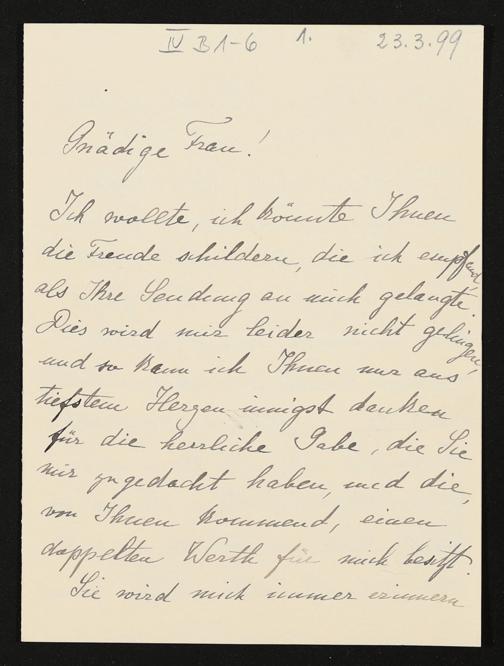 IV B 1-6 1. 23.3.99
Gnädige Frau!
Ich wollte, ich könnte Ihnen
die Freude schildern, die ich empfand
als Ihre Sendung an mich gelangte.
Dies wird mir leider nicht gelingen,
und so kann ich Ihnen nur aus
tiefstem Herzen innigst danken
für die herrliche Gabe, die Sie
mir zugedacht haben, und die,
von Ihnen kommend, einen
doppelten Werth für mich besitzt.
Sie wird mich immer erinnern